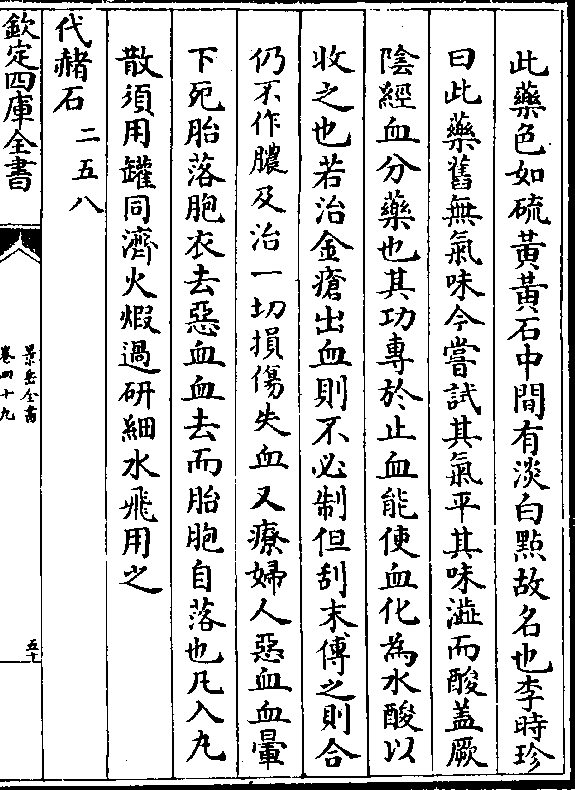 此藥色如硫黄黄石中間有淡白㸃故名也李時珍
曰此藥舊無氣味今嘗試其氣平其味澁而酸盖厥
陰經血分藥也其功專於止血能使血化為水酸以
收之也若治金瘡出血則不必制但刮末傅之則合
仍不作膿及治一切損傷失血又療婦人惡血血暈
下死胎落胞衣去惡血血去而胎胞自落也凡入丸
散須用罐同濟火煅過研細水飛用之
代赭石 二五八
欽定四庫全書
景岳全書
卷四十九
五十